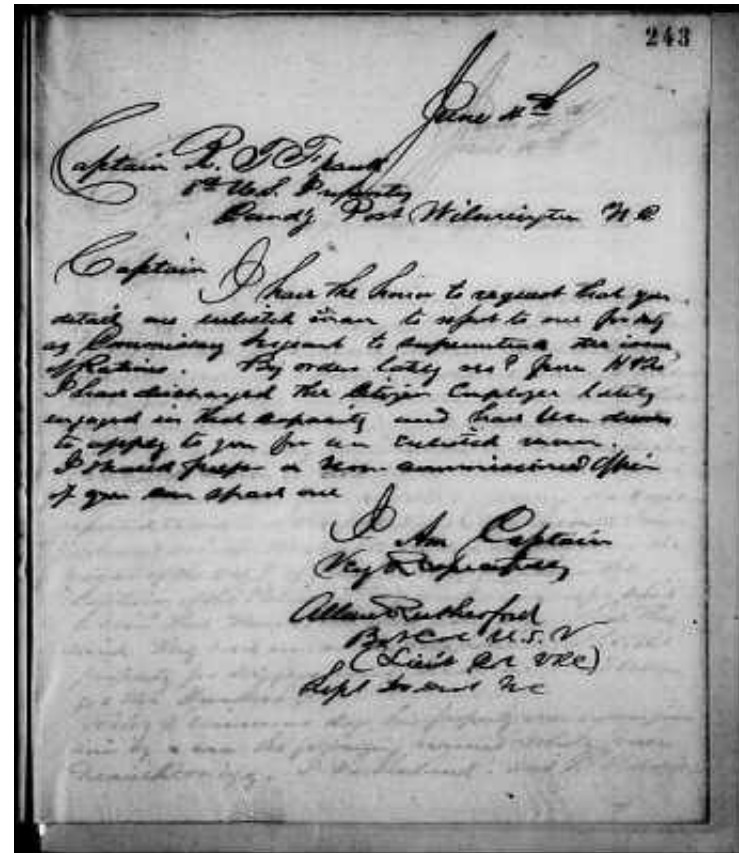 243
June 4th
Captain R. T. Frank
8th U.S. Infantry
Comdg Post Wilmington N C
Captain
I have the honor to request that you
detail one enlisted man to report to me for duty
as Commissary Sergeant to superintend the issue
of Rations. By orders lately rec'd from
I have discharged the Citizen Employee lately
engaged in that capacity and have been
to apply to you for an Enlisted man.
I should prefer a Non-commissioned Officer
if you can spare one
I Am Captain
Very Respectfully
Allan Rutherford
Bvt Col U.S.V
(Lieut Col VRC)